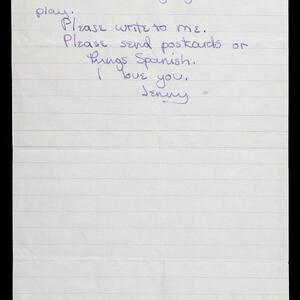 play.
Please write to me.
Please send postcards or
things Spanish.
I love you.
Jenny